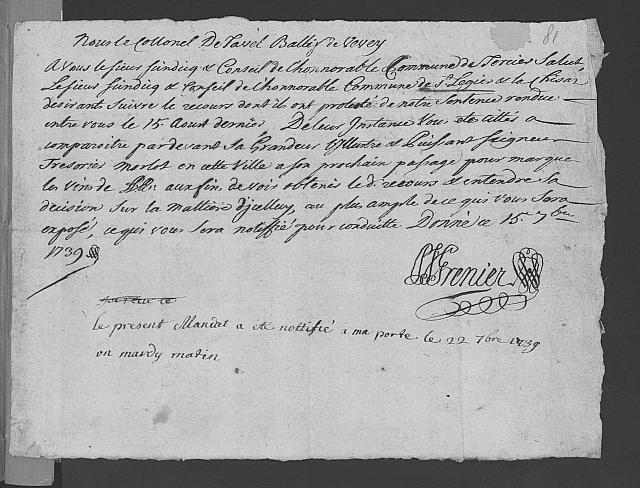 81
Nous le Collonel De Tavel Ballif de Vevey
A Vous le sieur sindicq & Conseil de L'honnorable Commune de Tercier Salut,
Le sieur sindicq & Conseil de L'honnorable Commune de St Legier & la Chisaz
desirants suivre le recours dont ils ont protesté de notre sentence rendue
entre vous le 15 Aoust dernier, De leur Instance Vous ete Cittés a
comparoitre par devant sa Grandeur Illustre & Puissant Seigneur
Tresorier Morlot en cette Ville a son prochain passage pour marquer
les vins de LL: EE: aux fins, de voir obtenir le d: recours & entendre sa
decision sur la mattiere d'jcelluy, au plus ample de ce que vous sera
exposé, ce qui vous sera notifié pour conduitte Donné ce 15e 7bre
1739
Grenier
le present Mandat a ete nottifié a ma porte le 22 7bre 1739
un mardy matin